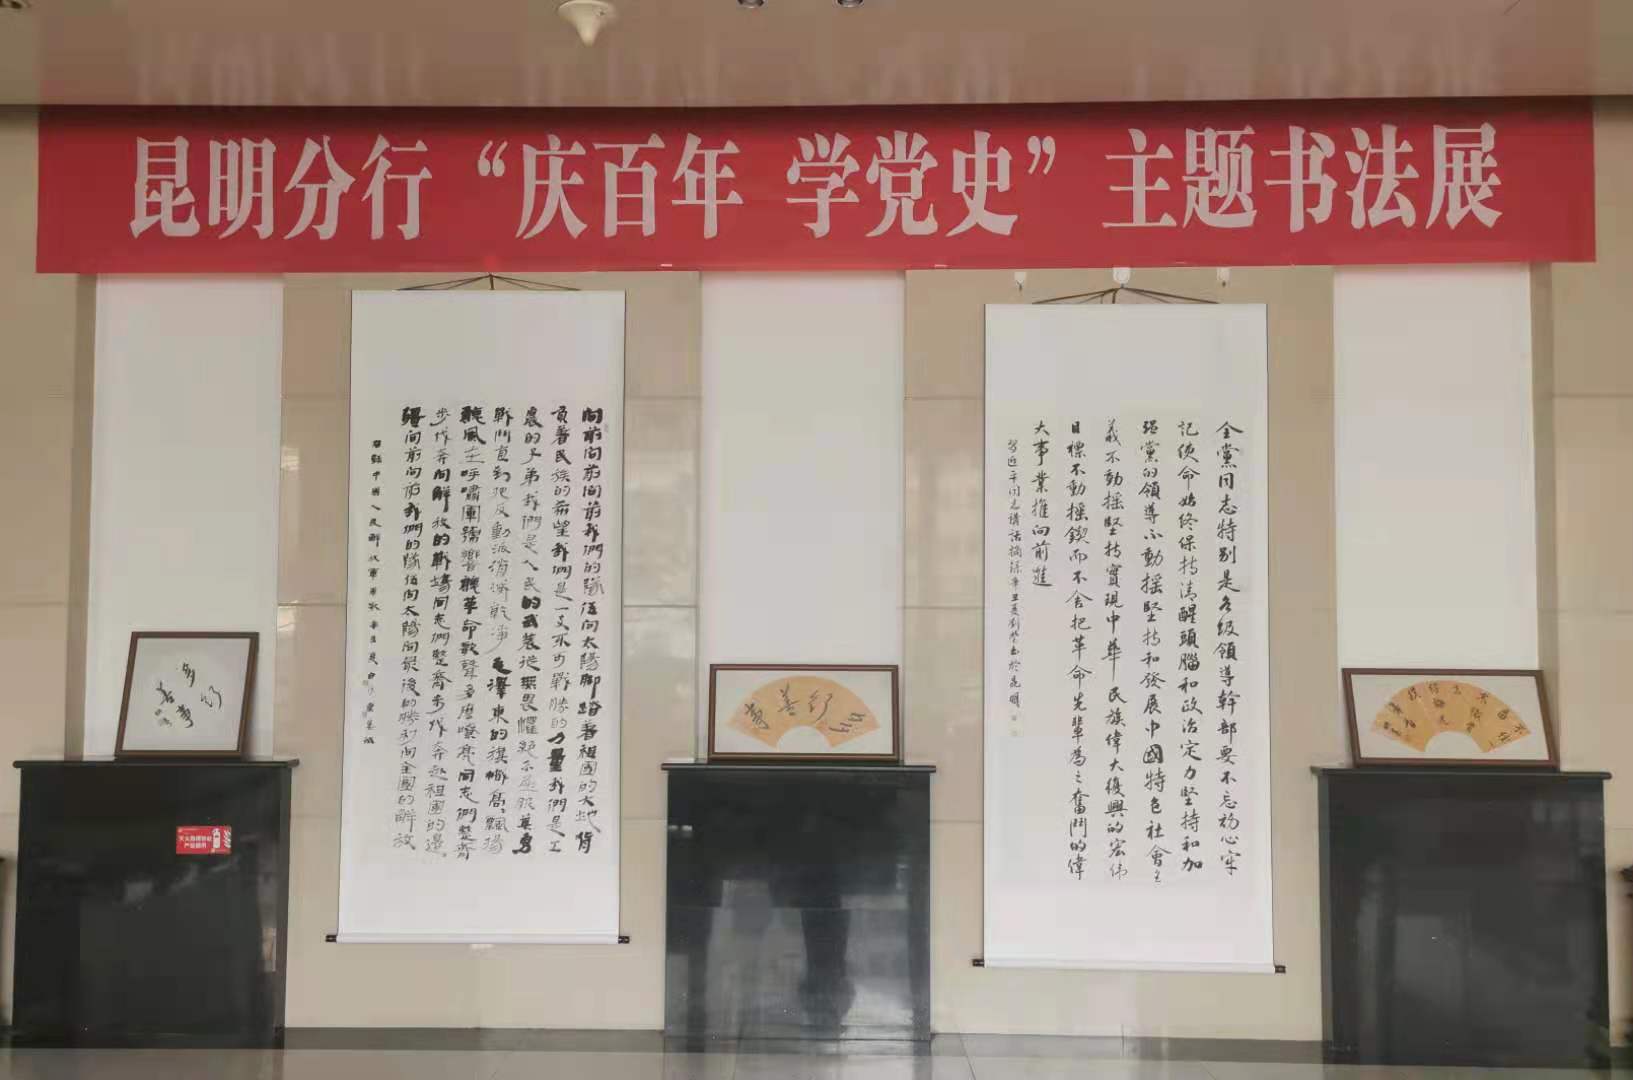 昆明分行“庆百年 学党史”主题书法展
向前向前向前我们的隊伍向太陽脚踏着祖國的大地背
負着民族的希望我们是一支不可戰勝的力量我们是工
農的子弟我们是人民的武裝從無畏懼絕不屈服英勇
戰鬥直到把反動派消滅乾净毛澤東的旗幟高高飄揚
聽風在呼嘯軍號響聽革命歌聲多麽嘹亮同志们整齊
步伐奔向解放的戰場同志们整齊步伐奔赴祖國的邊
疆向前向前我们的隊伍向太陽向最後的勝利向全國的解放
全黨同志特别是各級領導幹部要不忘初心牢
記使命始终保持清醒頭腦和政治定力堅持和加
强黨的領導不動摇堅持和發展中國特色社會主
義不動摇堅持實現中華民族偉大復興的宏伟
目標不動摇鍥而不舍把革命先輩為之奮鬥的偉
大事業推向前進
多行
善事